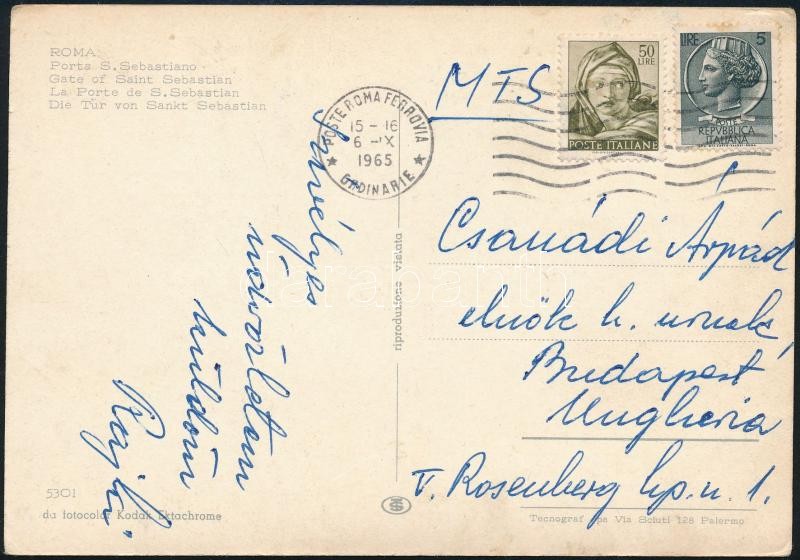 ROMA
Porta S. Sebastiano
Gate of Saint Sebastian
La Porte de S. Sebastian
Die Tür von Sankt Sebastian
POSTE ROMA FERROVIA
15-16
6-IX
1965
ORDINARIE
50
LIRE
POSTE ITALIANE
LIRE 5
POSTE
REPVBBLICA
ITALIANA
MTS
Csanádi Árpád
elnök h. urnak
Budapest
Ungheria
V. Rosenberg hp. u. 1.
Szivélyes
üdvözletem
küldöm
riproduzione vietata
5301
da fotocolor Kodak Ektachrome
Tecnograf spa Via Sciuti 128 Palermo
darabanth